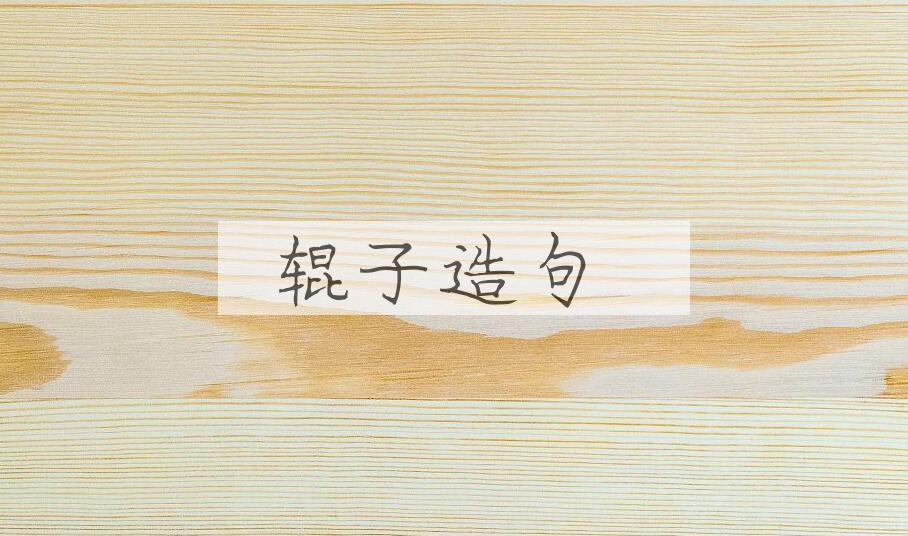 辊子造句